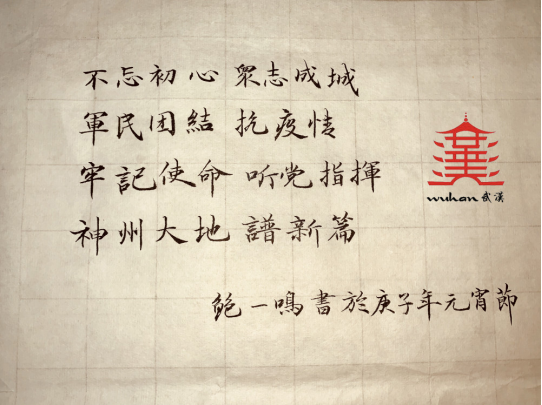 不忘初心 衆志成城
軍民团結 抗疫情
牢記使命 听党指揮
神州大地 譜新篇
wuhan 武漢
鲍一鳴書於庚子年元宵節